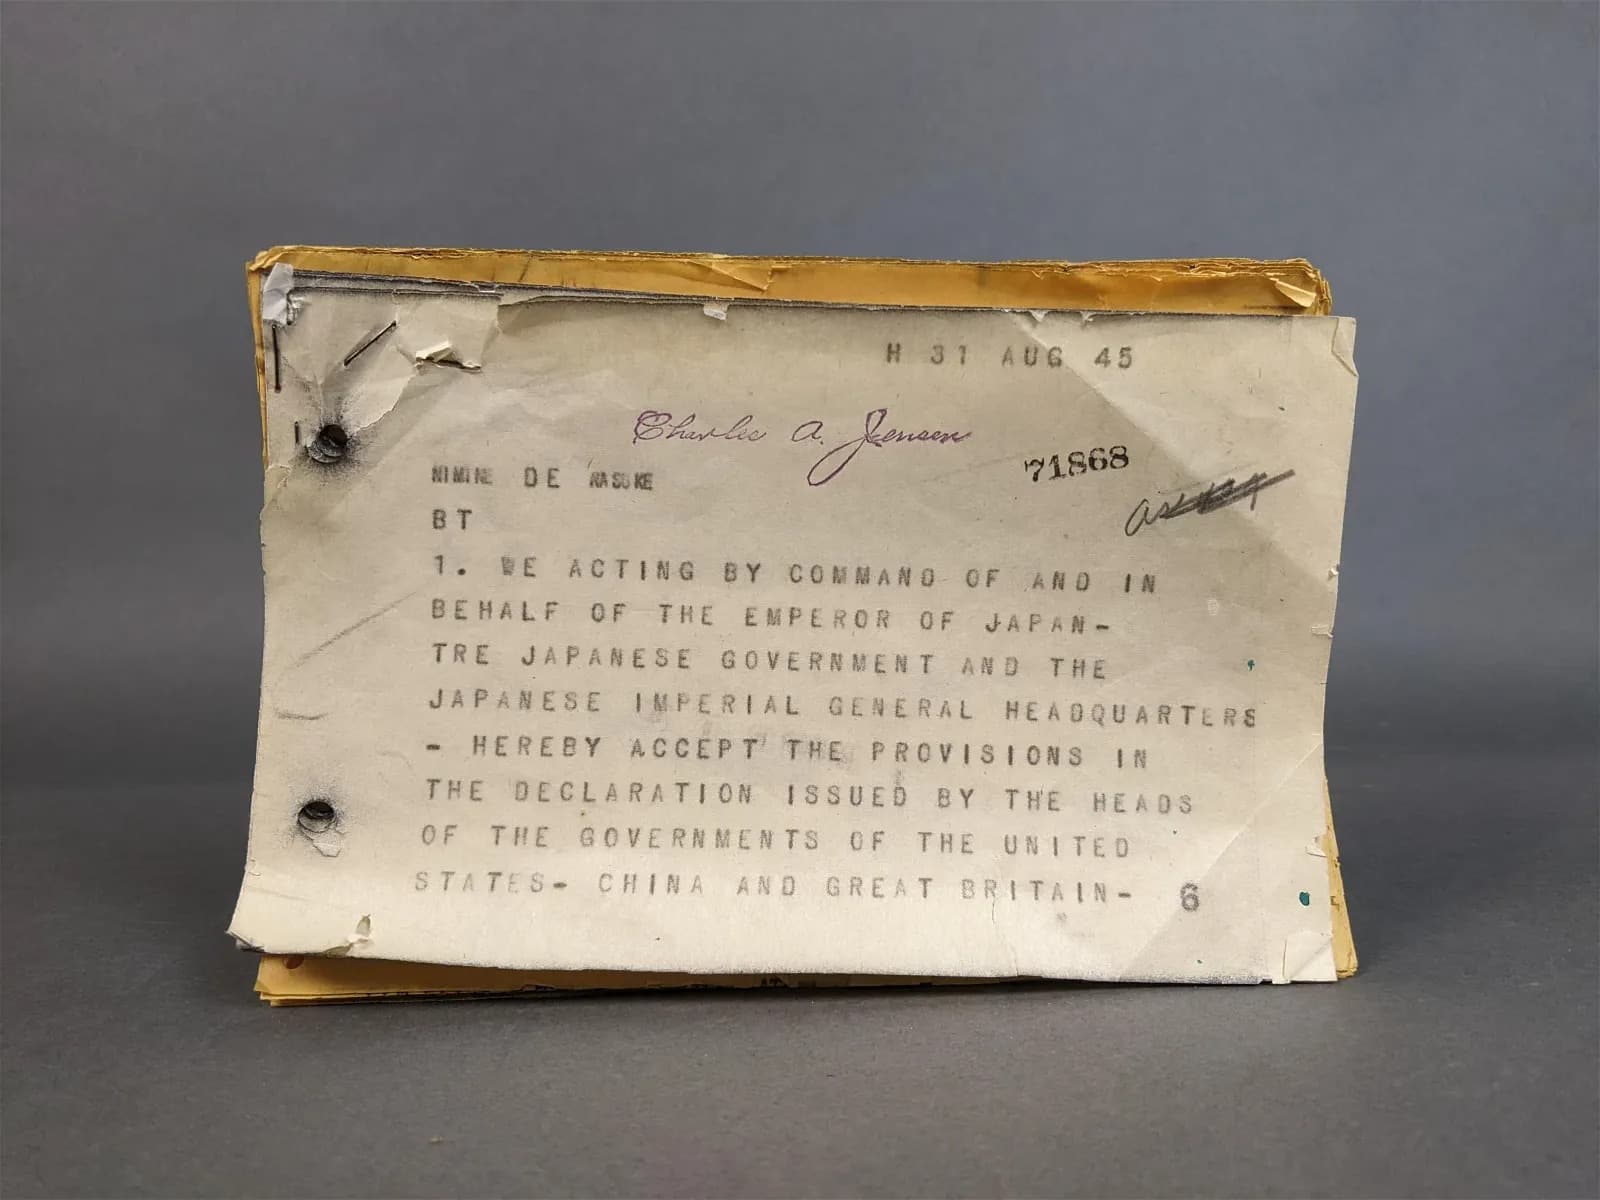 H 31 AUG 45
Charles A. Jensen
71868
DE
BT
1. WE ACTING BY COMMAND OF AND IN
BEHALF OF THE EMPEROR OF JAPAN-
TRE JAPANESE GOVERNMENT AND THE
JAPANESE IMPERIAL GENERAL HEADQUARTERS
- HEREBY ACCEPT THE PROVISIONS IN
THE DECLARATION ISSUED BY THE HEADS
OF THE GOVERNMENTS OF THE UNITED
STATES- CHINA AND GREAT BRITAIN- 6